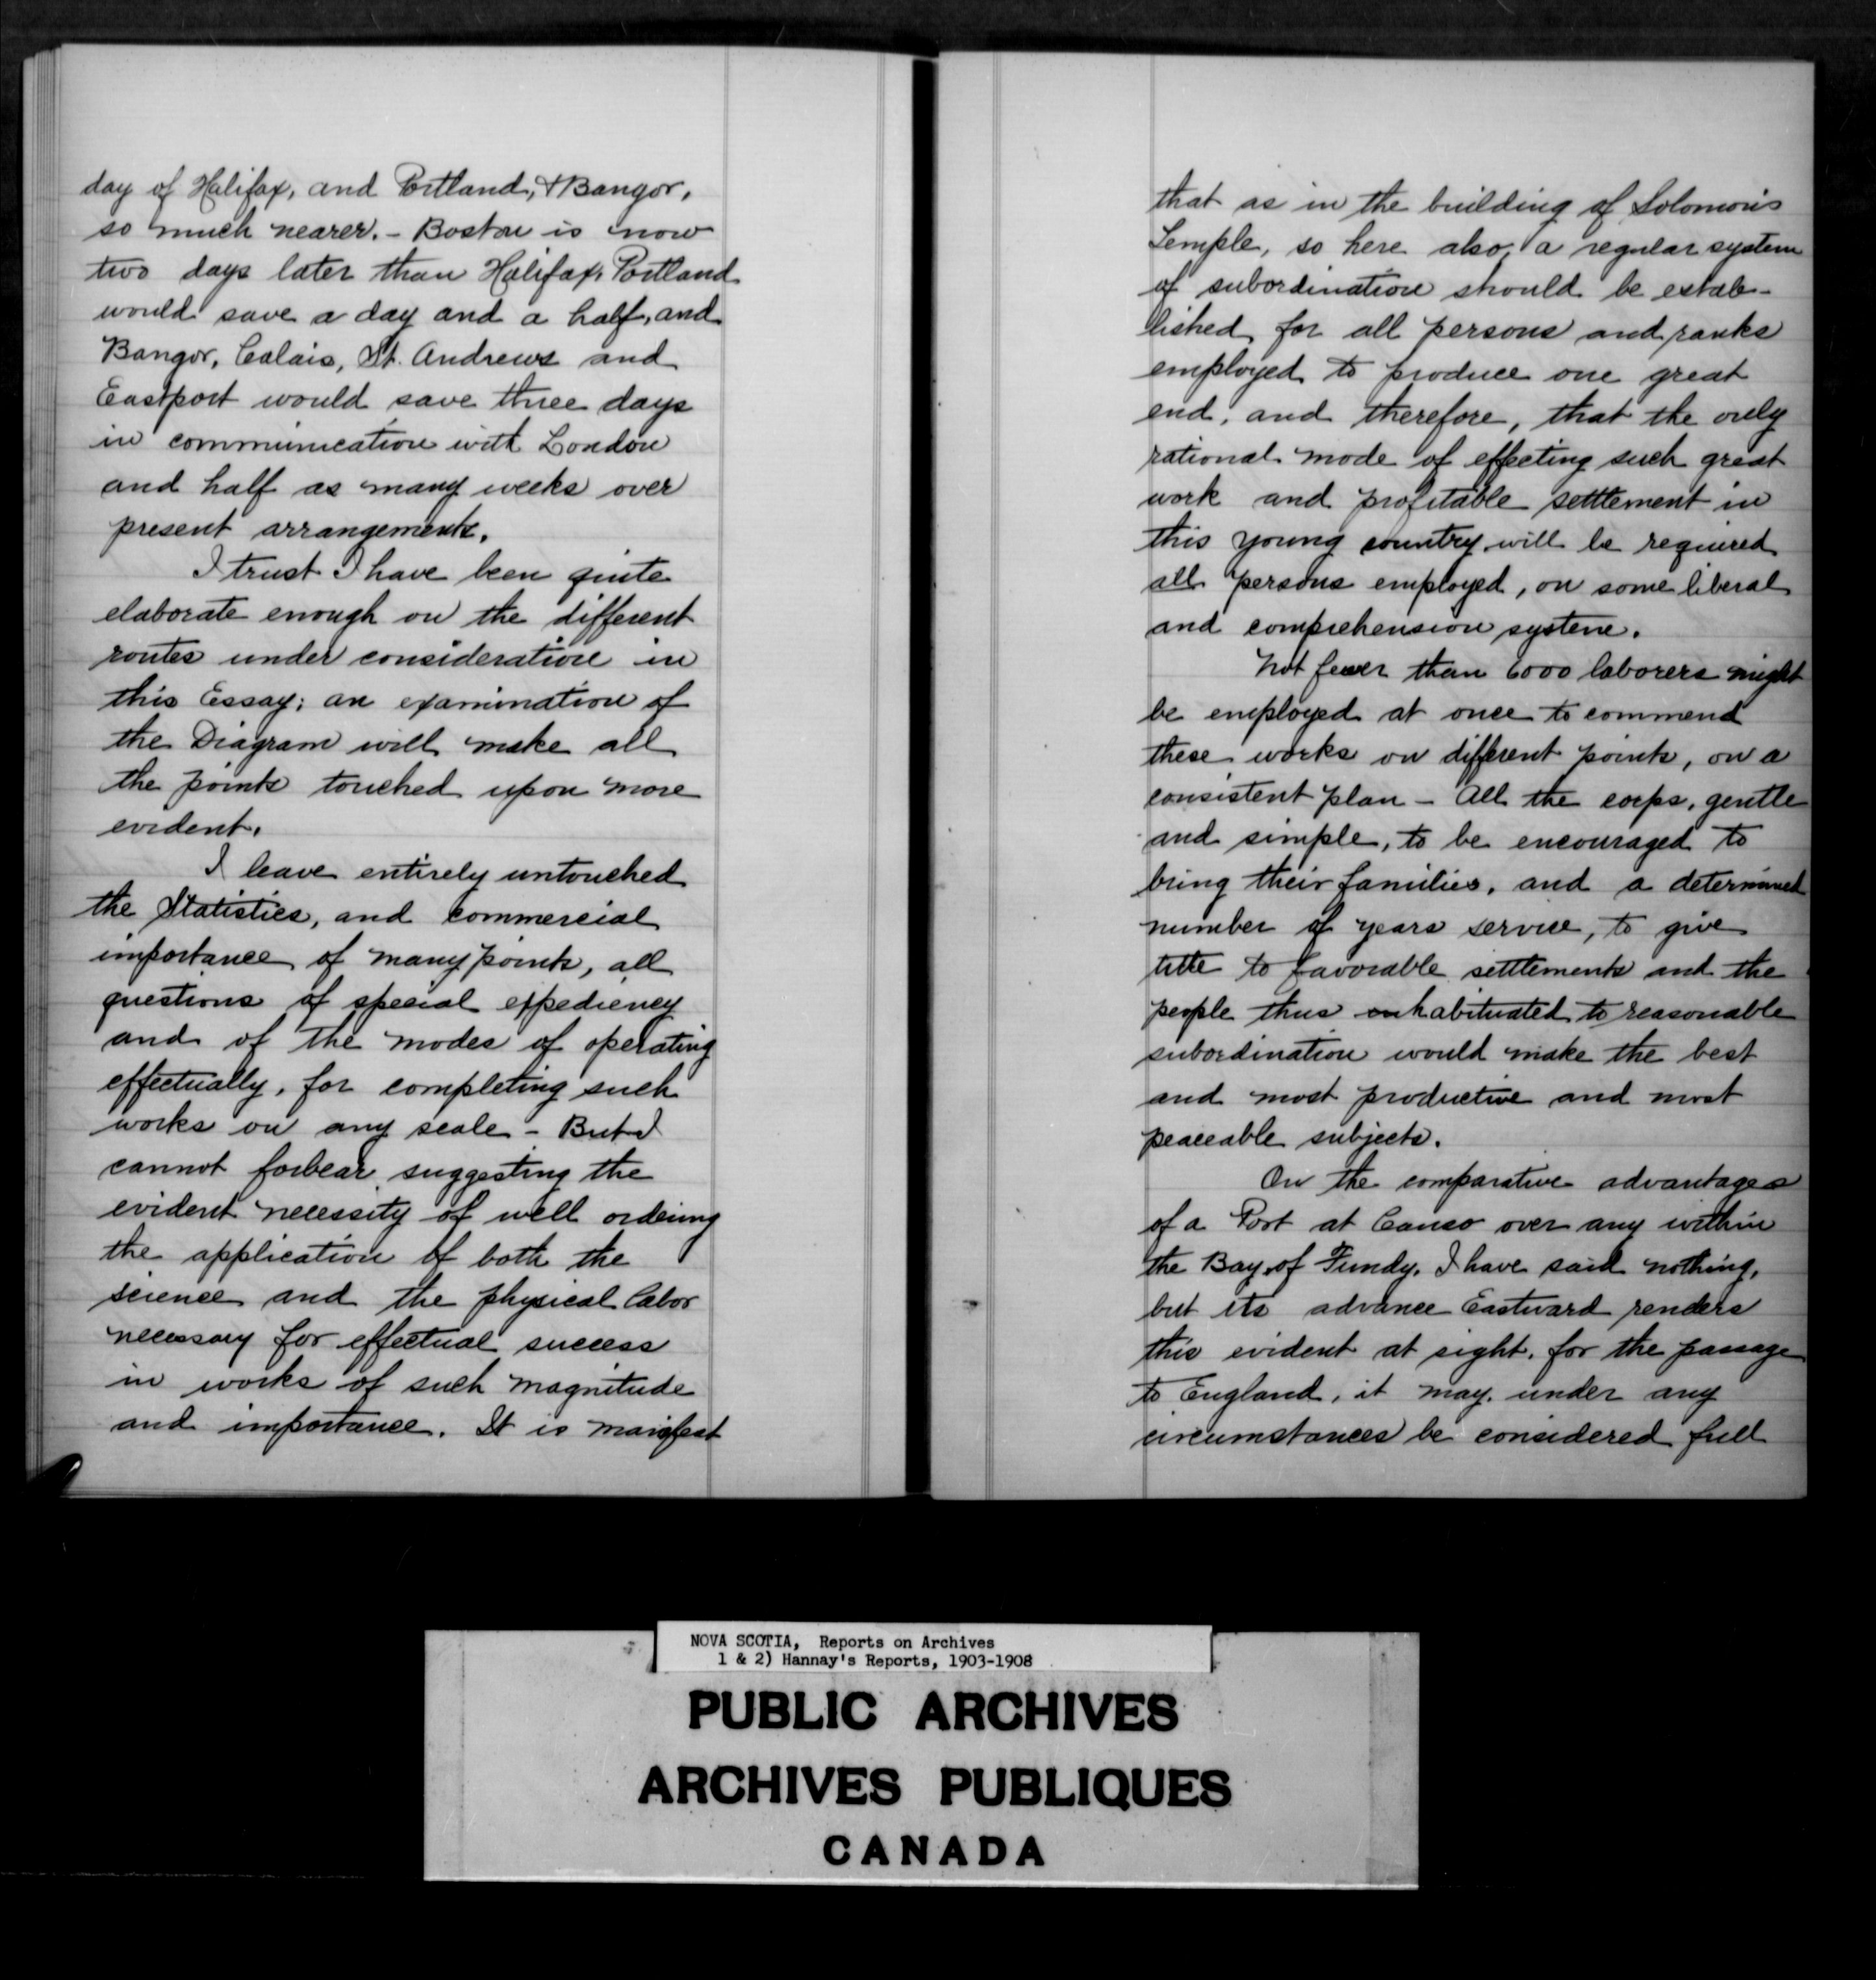 day of Halifax, and Portland, & Bangor,
so much nearer. - Boston is now
two days later than Halifax, Portland
would save a day and a half, and
Bangor, Calais, St. Andrews and
Eastport would save three days
in communication with London
and half as many weeks over
present arrangements.
I trust I have been quite
elaborate enough on the different
routes under consideration in
this Essay; an examination of
the Diagram will make all
the points touched upon more
evident.
I leave entirely untouched
the Statistics, and commercial
importance of many points, all
questions of special expediency
and of the modes of operating
effectually, for completing such
works on any scale - But I
cannot forbear suggesting the
evident necessity of well ordering
the application of both the
science and the physical labor
necessary for effectual success
in works of such magnitude
and importance. It is manifest
that as in the building of Solomon's
Temple, so here also, a regular system
of subordination should be estab-
lished for all persons and ranks
employed to produce one great
end, and therefore, that the only
rational mode of effecting such great
work and profitable settlement in
this young country will be required
all persons employed, on some liberal
and comprehension system.
Not fewer than 6000 laborers might
be employed at once to commend
these works on different points, on a
consistent plan - All the corps, gentle
and simple, to be encouraged to
bring their families, and a determined
number of years service, to give
title to favorable settlements and the
people thus inhabituated to reasonable
subordination would make the best
and most productive and most
peaceable subjects.
On the comparative advantages
of a Port at Canso over any within
the Bay of Fundy, I have said nothing,
but its advance Eastward renders
this evident at sight, for the passage
to England, it may, under any
circumstances be considered full
NOVA SCOTIA, Reports on Archives
1 & 2) Hannay's Reports, 1903-1908
PUBLIC ARCHIVES
ARCHIVES PUBLIQUES
CANADA